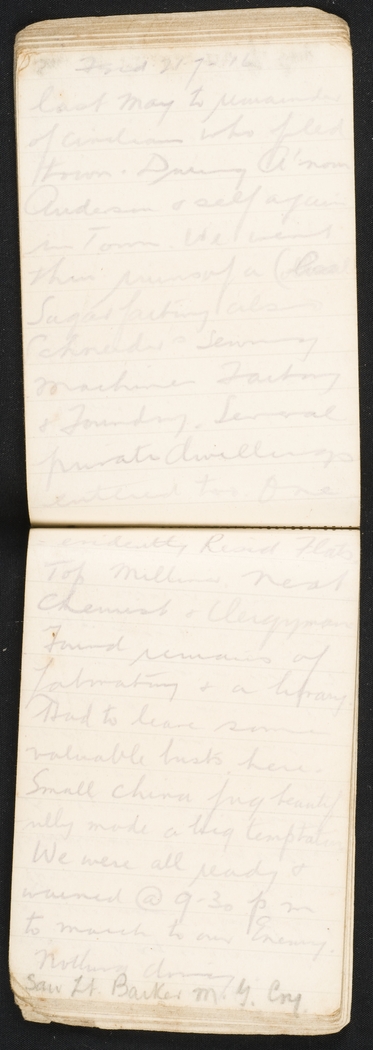 Fried 21-7-16
last May to remainder
of civilians who fled
town. During A'noon
Anderson & self again
in Town. We went
thru ruins of a (
Sugar factory also
Schneider's Sewing
Machine Factory
& Foundry. Several
private dwellings
entered too One
evidently Resid Flats
Top Milliner next
Chemist & Clergyman
Found remains of
laboratory & a library.
Had to leave some
valuable busts here.
Small china jug beautif
ully made a big temptation
We were all ready &
warned @ 9-30 pm
to march to our Enemy.
Nothing doing
Saw Lt. Barker M. G. Coy.